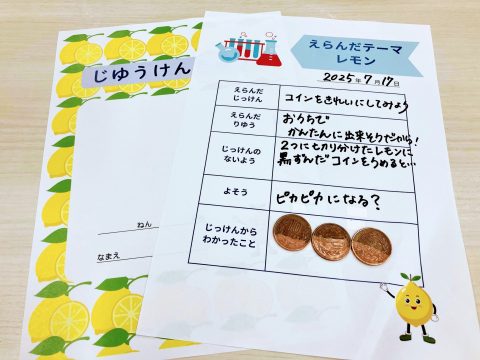 じゆうけん
ねん
なまえ
えらんだテーマ
レモン
2025年7月17日
えらんだ
じっけん
コインをきれいにしてみよう
えらんだ
りゆう
おうちで
かんたんに出来そうだから!
じっけんの
ないよう
2つに切り分けたレモンに
黒ずんだコインをうめると…
よそう
ピカピカになる?
じっけんから
わかったこと